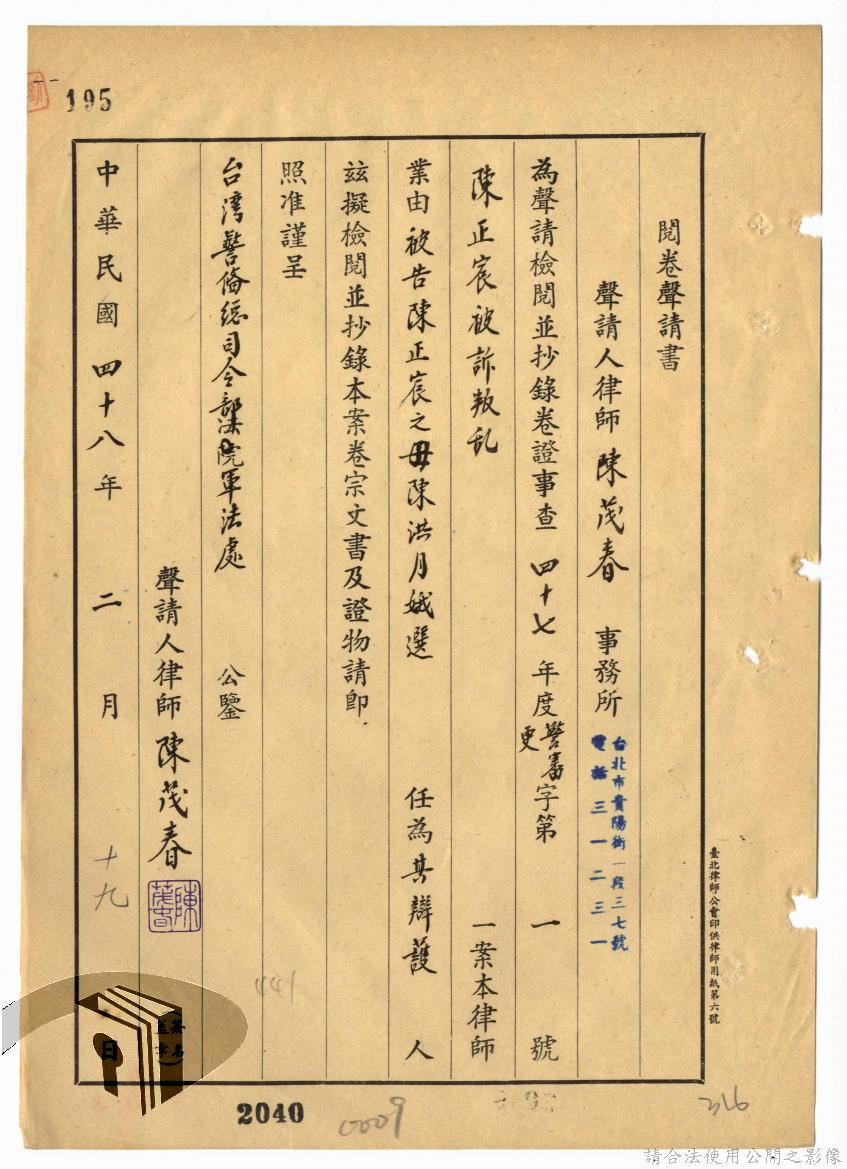 195
閱卷聲請書
聲請人律師 陳茂春 事務所 台北市貴陽街一段三七號 電話三一二三一
為聲請檢閱並抄錄卷證事查 四十七 年度 警審更 字第 一 號
陳正宸被訴叛乱 一案本律師
業由 被告陳正宸之母陳洪月娥選 任為其辯護 人
茲擬檢閱並抄錄本案卷宗文書及證物請卽
照准謹呈
台湾警俻總司令部法院軍法處 公鑒
聲請人律師 陳茂春 陳茂春
中華民國 四十八 年 二 月 十九 日
(簽名蓋章)
臺北律師公會印供律師用紙第六號
441
2040
0009
316
請合法使用公開之影像